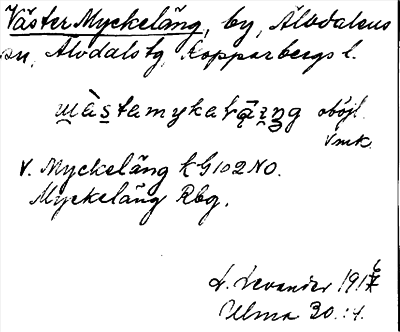 Väster Myckeläng, by, Älvdalens
sn, Älvdals tg, Kopparbergs l.
oböjl.
vmk.
V. Myckeläng kG 102 NO.
Myckeläng Rbg.
L. Levander 191
Ulma 30:4.